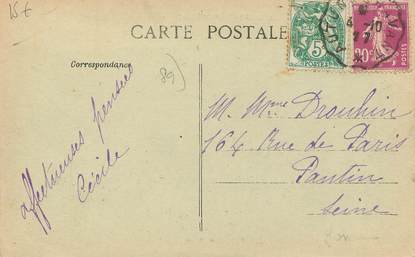 15 €
CARTE POSTALE
Correspondance
89
affectueuses pensées
Cécile
M. Mme Drouhin
164 Rue de Paris
Pantin
Seine
5
POSTES
20c
POSTES